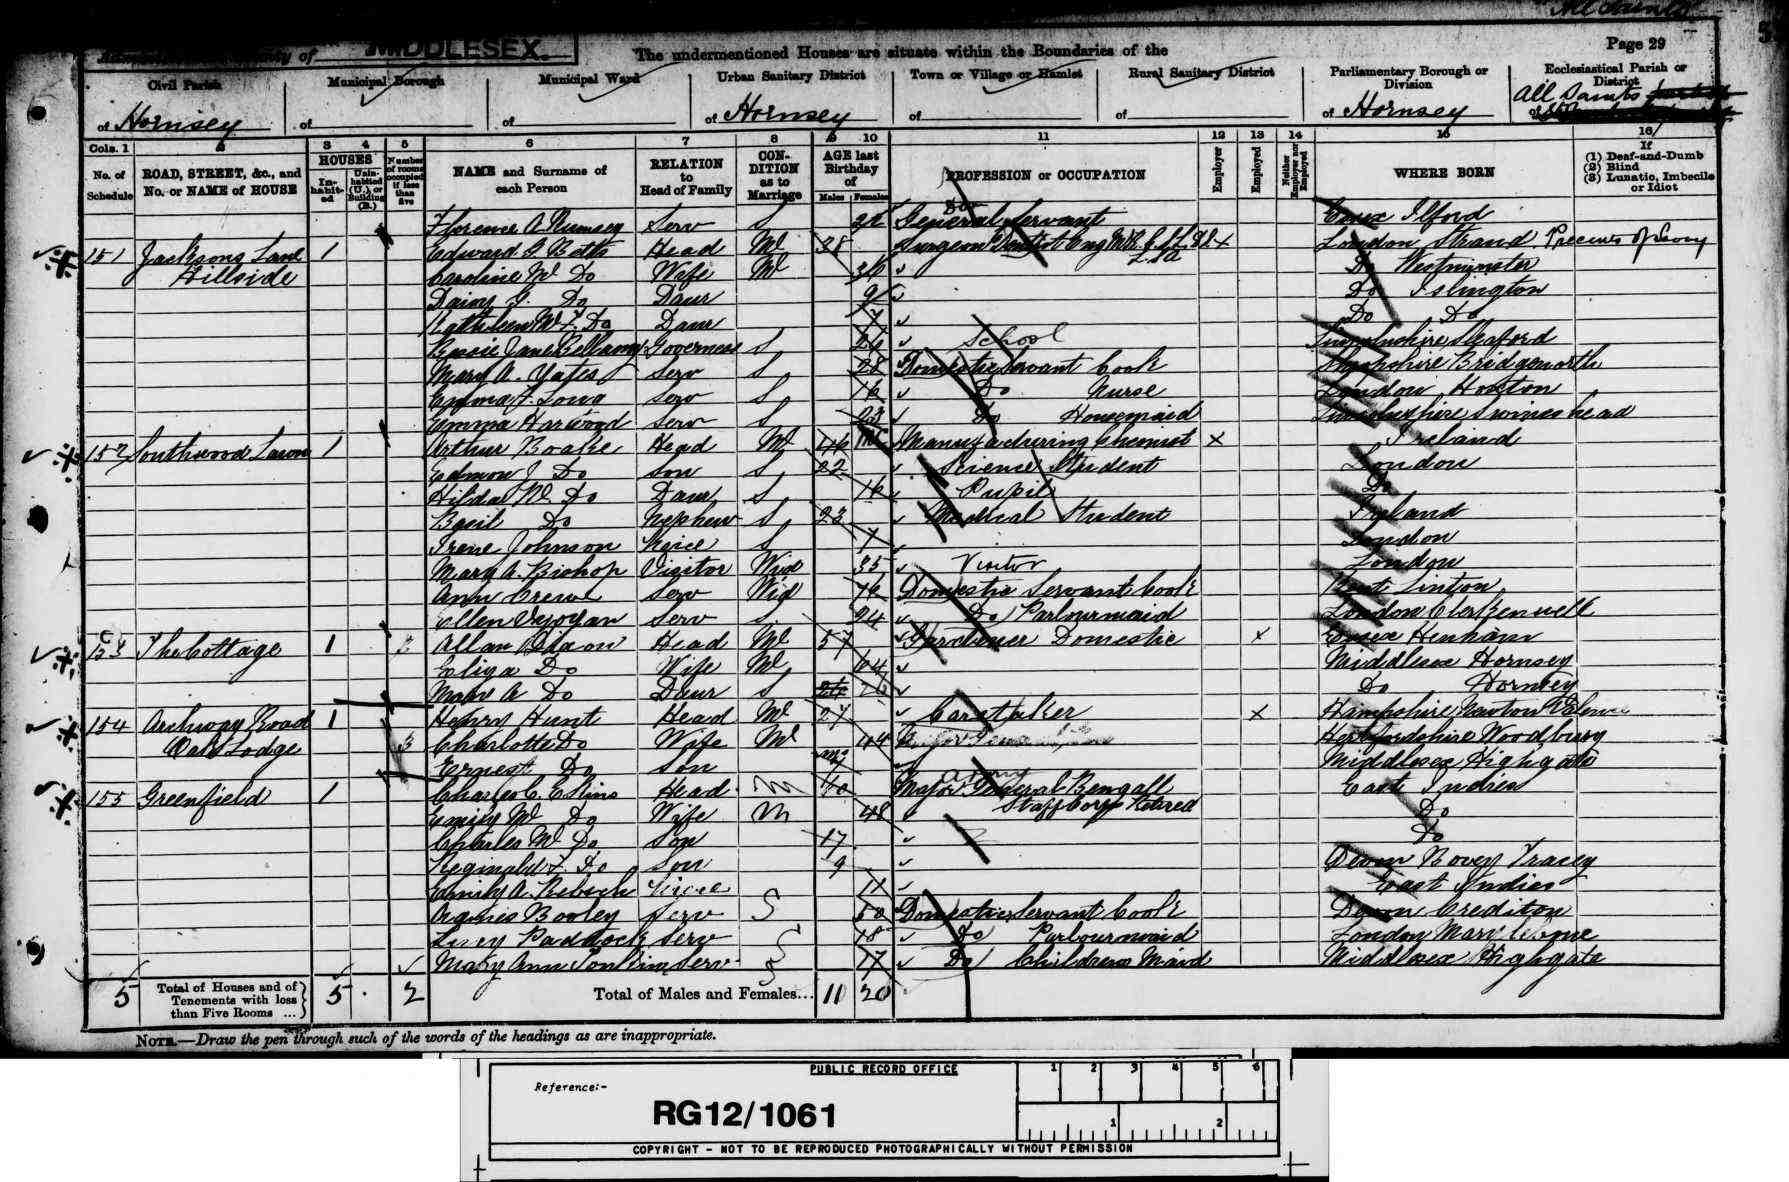 All Saints
MIDDLESEX.
The undermentioned Houses are situate within the Boundaries of the
Page 29
Civil Parish
Municipal Borough
Municipal Ward
Urban Sanitary District
Town or Village or Hamlet
Rural Sanitary District
Parliamentary Borough or Division
Ecclesiastical Parish or District
of Hornsey
of
of
of Hornsey
of
of
of Hornsey
All Saints
Cols. 1 2 3 4 5 6 7 8 9 10 11 12 13 14 15 16
No. of Schedule
ROAD, STREET, &c., and No. or NAME of HOUSE
HOUSES
Inhabited
Uninhabited (U.), or Building (B.)
Number of rooms occupied if less than five
NAME and Surname of each Person
RELATION to Head of Family
CONDITION as to Marriage
AGE last Birthday of
Males Females
PROFESSION or OCCUPATION
Employer
Employed
Neither Employer nor Employed
WHERE BORN
If (1) Deaf-and-Dumb (2) Blind (3) Lunatic, Imbecile or Idiot
Florence A Rumsey Serv S General Servant Essex Ilford
151 Jacksons Lane 1 Edward G. Betts Head M 38 Surgeon Dentist London Strand Precincts of Savoy
Hillside Caroline M Do Wife M 36 Do Westminster
Daisy G. Do Daur 9 Do Islington
Kathleen M. F. Do Daur 7 Do Do
Bessie Jane Bellamy Governess S School Lincolnshire Sleaford
Mary A. Yates Serv S 28 Domestic Servant Cook Shropshire Bridgenorth
Emma F. Long Serv S 16 Do Nurse London Hoxton
Emma Harwood Serv S 23 Do Housemaid Lincolnshire Swineshead
152 Southwood Lawn 1 Arthur Boake Head M 46 Manufacturing Chemist x Ireland
Edmon J. Do Son S 22 Science Student London
Hilda M. Do Daur S 16 Pupil Do
Basil Do Nephew S 23 Medical Student Ireland
Irene Johnson Niece S 7 London
Mary A. Bishop Visitor Wid 35 Visitor London
Ann Crewe Serv Wid Domestic Servant Cook Kent Linton
Ellen Serv S 24 Do Parlourmaid London Clerkenwell
153 The Cottage 1 3 Allan Dixon Head M 57 Gardener Domestic x Essex Henham
Eliza Do Wife M 64 Middlesex Hornsey
Mary A Do Daur S 26 Do Hornsey
154 Archway Road 1 3 Henry Hunt Head M 27 Caretaker x Hampshire Newton Valence
Oak Lodge Charlotte Do Wife M 44 Hertfordshire Woodbury
Ernest Do Son Middlesex Highgate
155 Greenfield 1 Charles C. Ekins Head M 40 Major General Bengall East Indies
Army
Staff Corps Retired
Emily M Do Wife M 48 Do
Charles M. Do Son 17 Do
Reginald F. Do Son 9 Devon Bovey Tracey
Emily A. Niece 11 East Indies
Agnes Booley Serv S 50 Domestic Servant Cook Devon Crediton
Lucy Paddock Serv S 18 Do Parlourmaid London Marylebone
Mary Ann Tomkins Serv S 17 Do Childrens Maid Middlesex Highgate
5 Total of Houses and of Tenements with less than Five Rooms ... 5 2 Total of Males and Females... 11 20
NOTE.—Draw the pen through such of the words of the headings as are inappropriate.
PUBLIC RECORD OFFICE
1 2 3 4 5 6
Reference:-
RG12/1061
1 2
COPYRIGHT - NOT TO BE REPRODUCED PHOTOGRAPHICALLY WITHOUT PERMISSION